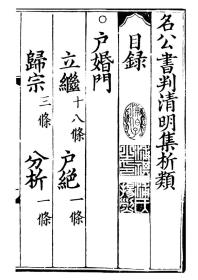 名公書判清明集析類
目録
戶婚門
立繼十八條　戶絕一條
歸宗三條　分析一條